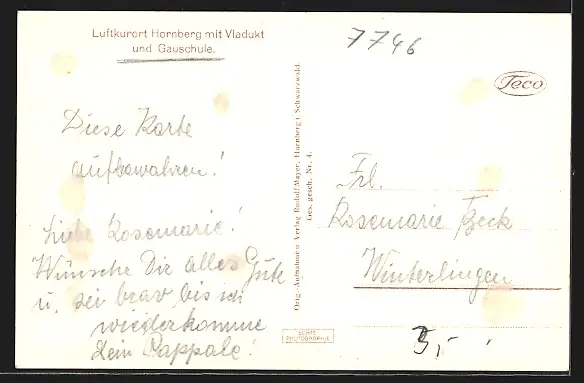 Luftkurort Hornberg mit Viadukt
und Gauschule.
7746
Teco
Diese Karte
aufbewahren!
Liebe Rosemarie!
Wünsche Dir alles Gute
u. sei brav bis ich
wiederkomme
Dein Pappale!
Orig.-Aufnahmen Verlag Rudolf Mayer, Hornberg i Schwarzwald.
Ges. gesch. Nr. 4.
Frl.
Rosemarie Beck
Winterlingen
ECHTE
PHOTOGRAPHIE
3,-